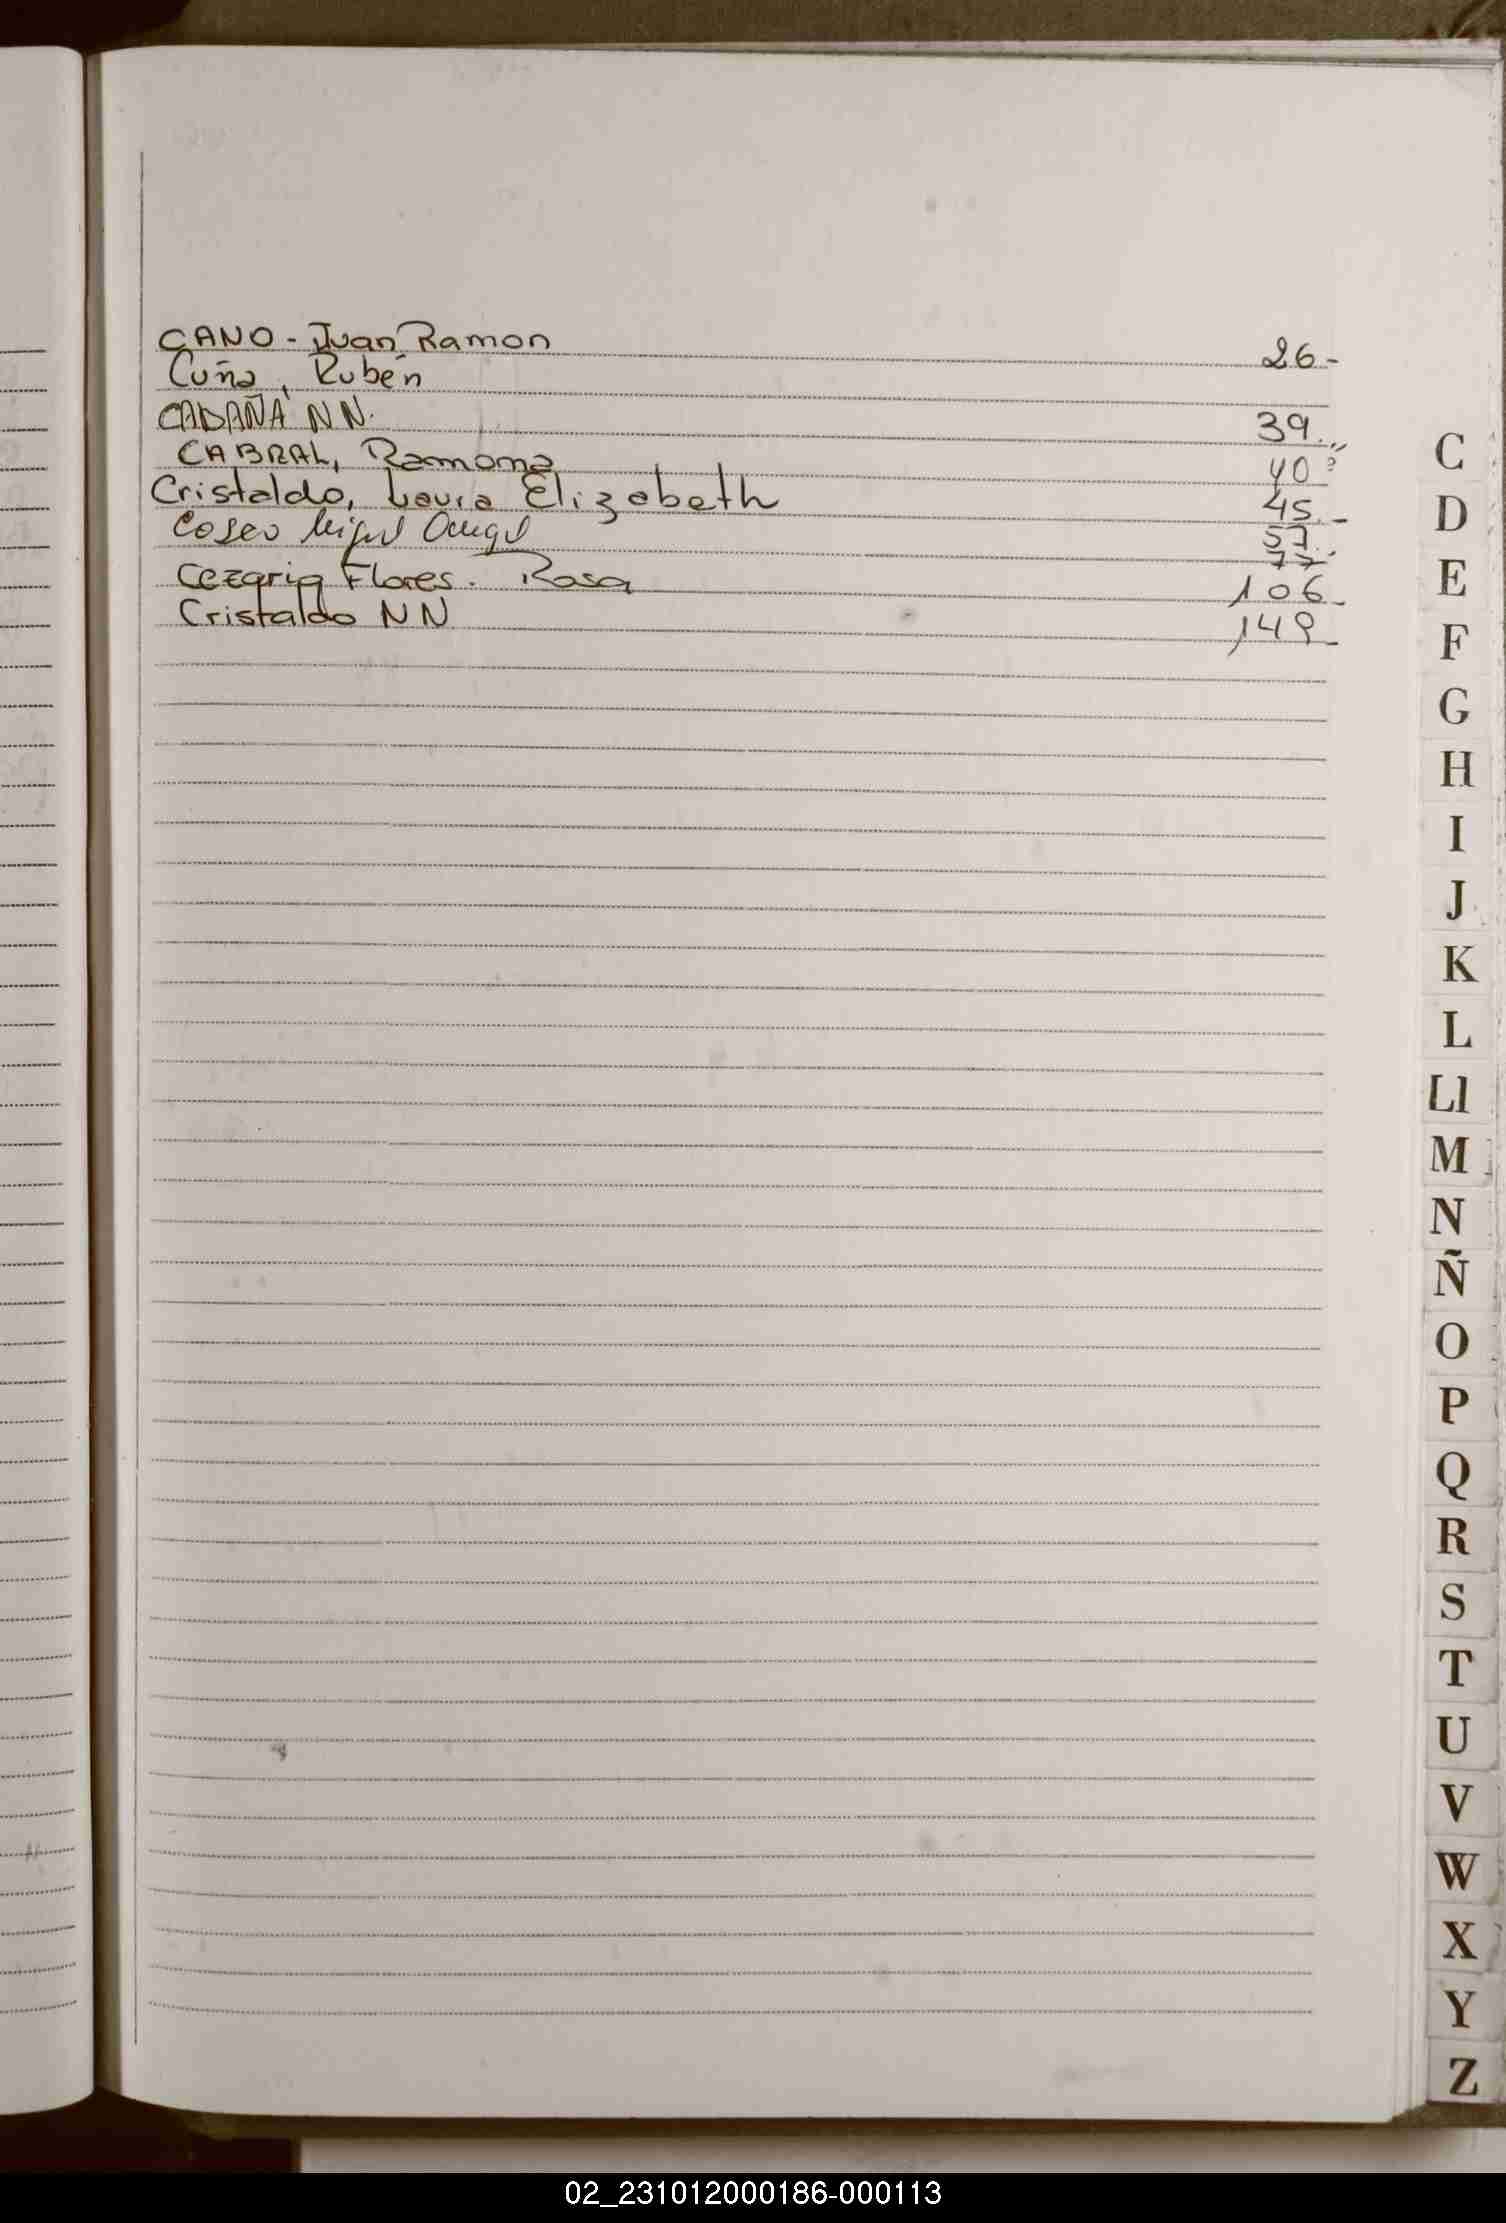 CANO - Juan Ramon 26-
Cuña, Rubén
CADAÑA NN. 39
CABRAL, Ramona 40
Cristaldo, Laura Elizabeth 45
Miguel Angel 57
77
Cezaria Flores. Rosa 106
Cristaldo NN 149
C
D
E
F
G
H
I
J
K
L
Ll
M
N
Ñ
O
P
Q
R
S
T
U
V
W
X
Y
Z
02_231012000186-000113